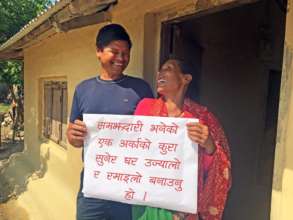 समझदारी भनेको
एक अर्काको कुरा
सुनेर घर उज्यालो
र रमाइलो बनाउनु
हो ।